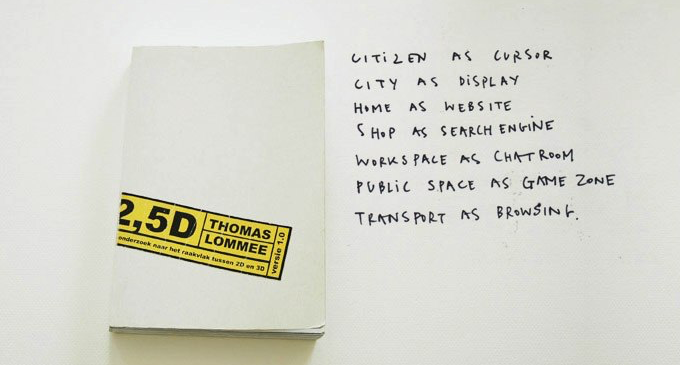 2,5D
THOMAS
LOMMEE
versie 1.0
onderzoek naar het raakvlak tussen 2D en 3D
CITIZEN AS CURSOR
CITY AS DISPLAY
HOME AS WEBSITE
SHOP AS SEARCH ENGINE
WORKSPACE AS CHATROOM
PUBLIC SPACE AS GAME ZONE
TRANSPORT AS BROWSING.